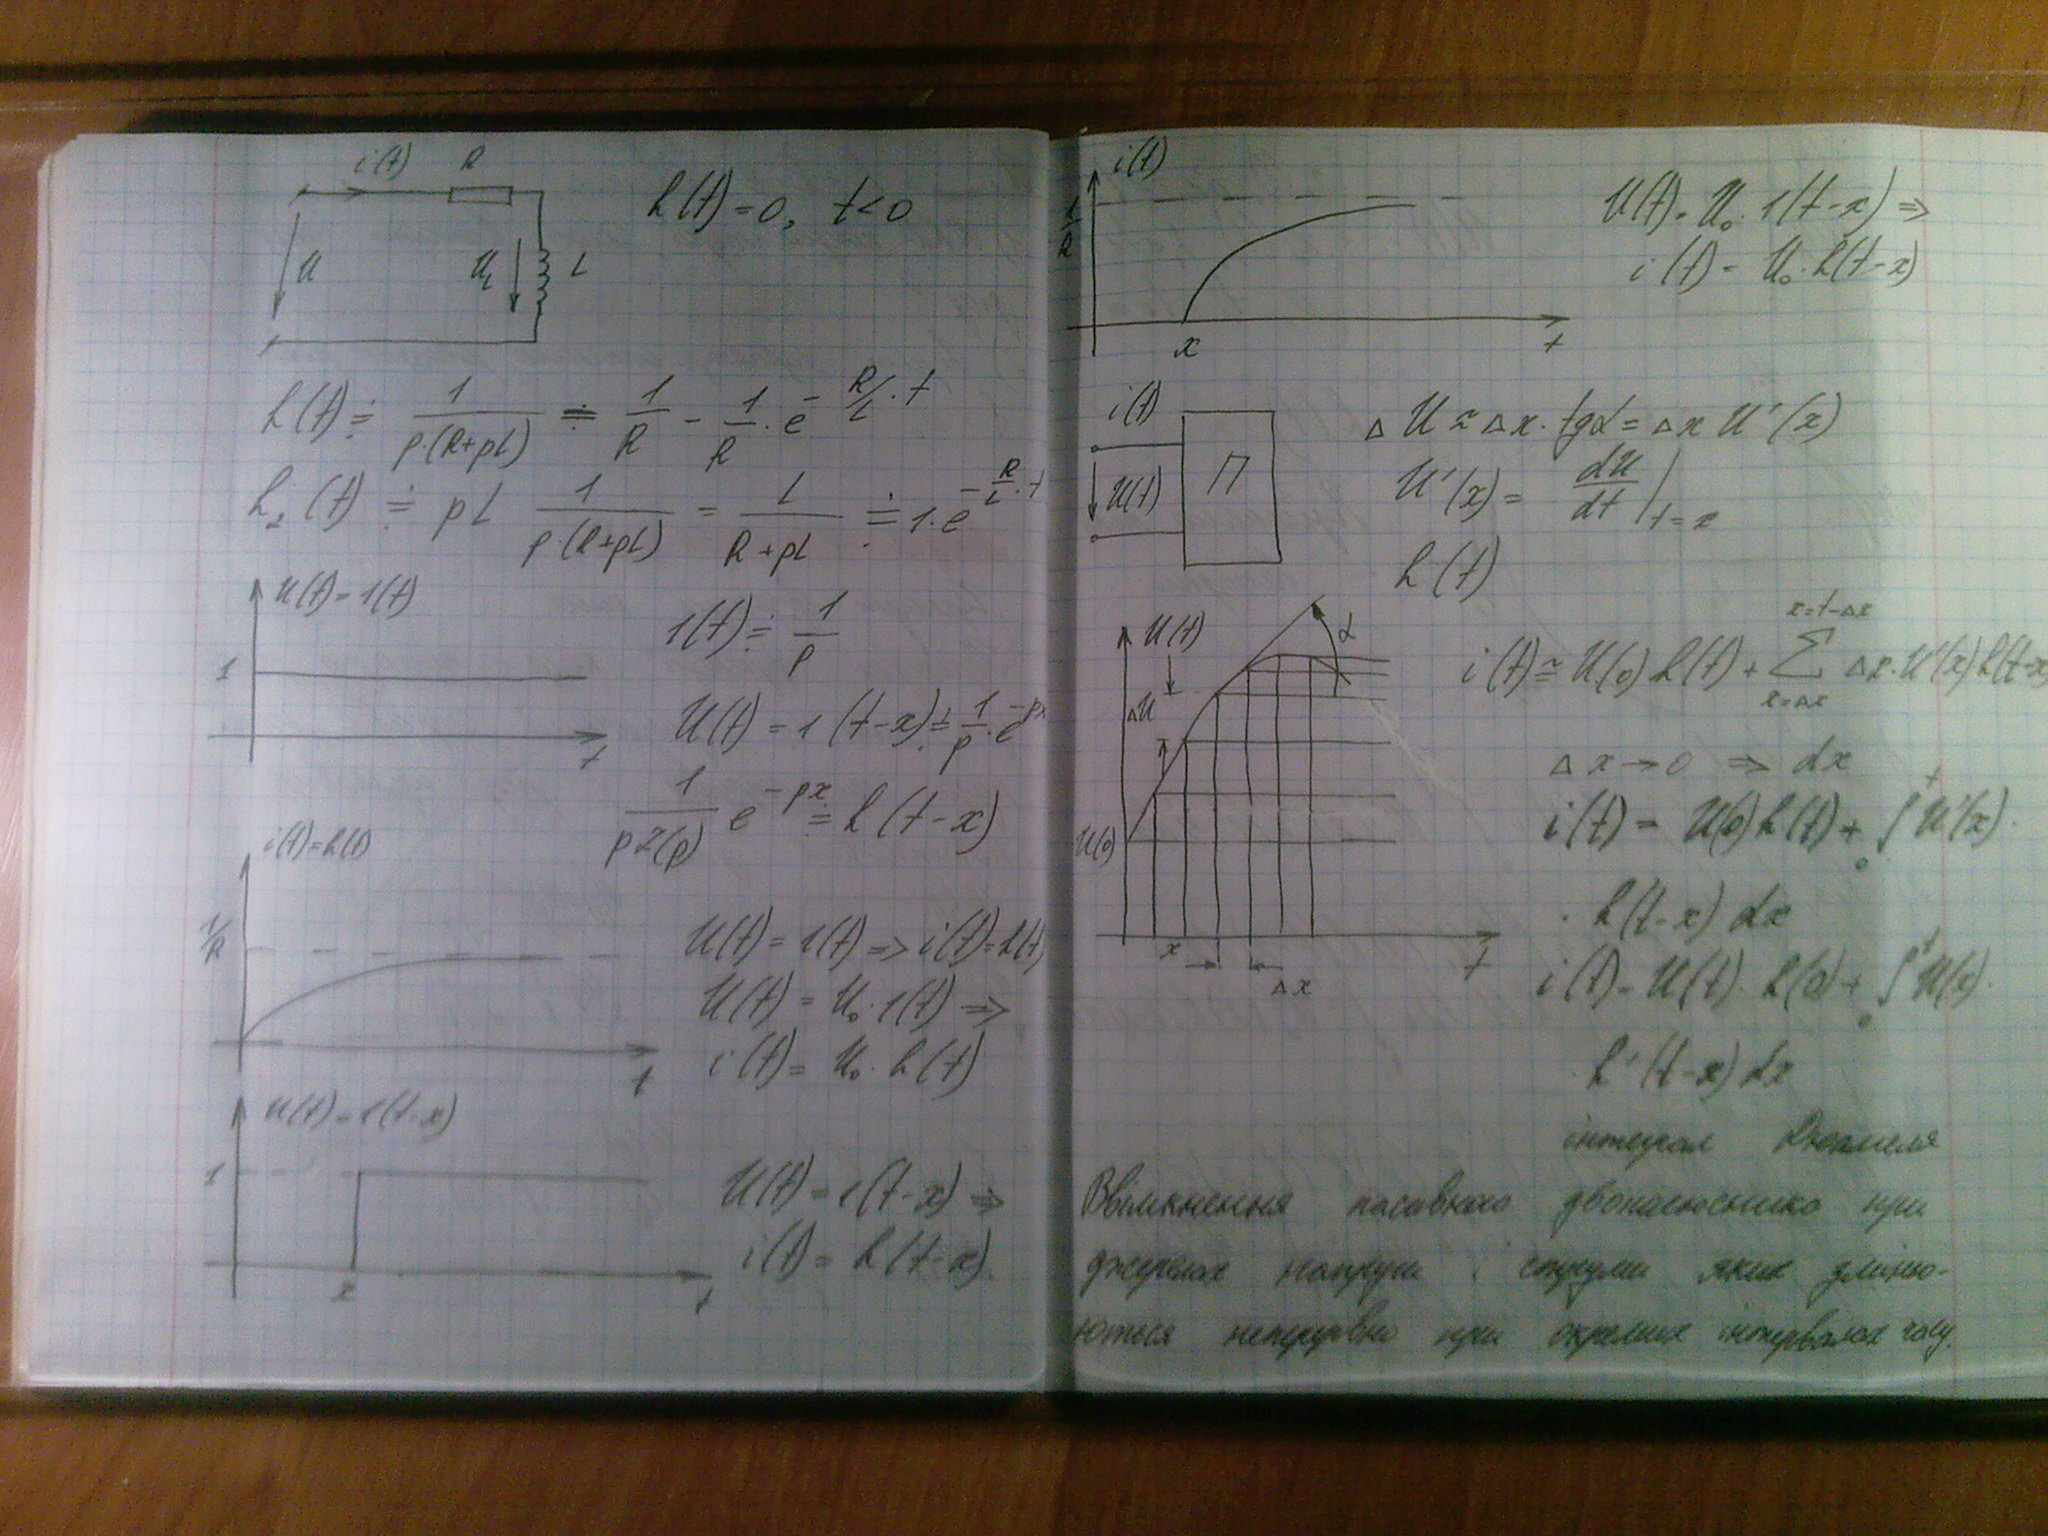 i(t) R
h(t) = 0, t < 0
U U_L L
h(t) ≓ 1/(p·(R+pL)) ≓ 1/R - 1/R · e^(-R/L · t)
h₂(t) ≓ pL 1/(p·(R+pL)) = L/(R+pL) ≓ 1·e^(-R/L · t)
U(t) = 1(t)
1(t) ≓ 1/p
1
U(t) = 1(t-x) ≓ 1/p · e^(-px)
t
1/(pZ(p)) e^(-px) ≓ h(t-x)
i(t) = h(t)
1/R
U(t) = 1(t) => i(t) = h(t)
U(t) = U₀·1(t) =>
i(t) = U₀·h(t)
t
U(t) = 1(t-x)
1
U(t) = 1(t-x) =>
i(t) = h(t-x)
x t
i(t)
1/R
U(t) = U₀·1(t-x) =>
i(t) = U₀·h(t-x)
x t
i(t)
U(t) П
ΔU ≈ Δx·tgα = Δx U'(x)
U'(x) = dU/dt |t=x
h(t)
U(t) α
ΔU
U(0)
x Δx t
i(t) ≅ U(0) h(t) + Σ(x=Δx; x=t-Δx) Δx·U'(x) h(t-x)
Δx → 0 => dx
i(t) = U(0) h(t) + ∫₀ᵗ U'(x)·
· h(t-x) dx
i(t) = U(t)·h(0) + ∫₀ᵗ U(x)·
· h'(t-x) dx
інтеграл Дюамеля
Ввімкнення пасивного двополюсника при
джерелах напруги і струму яких зміню-
ються неперервно при окремих інтервалах часу.